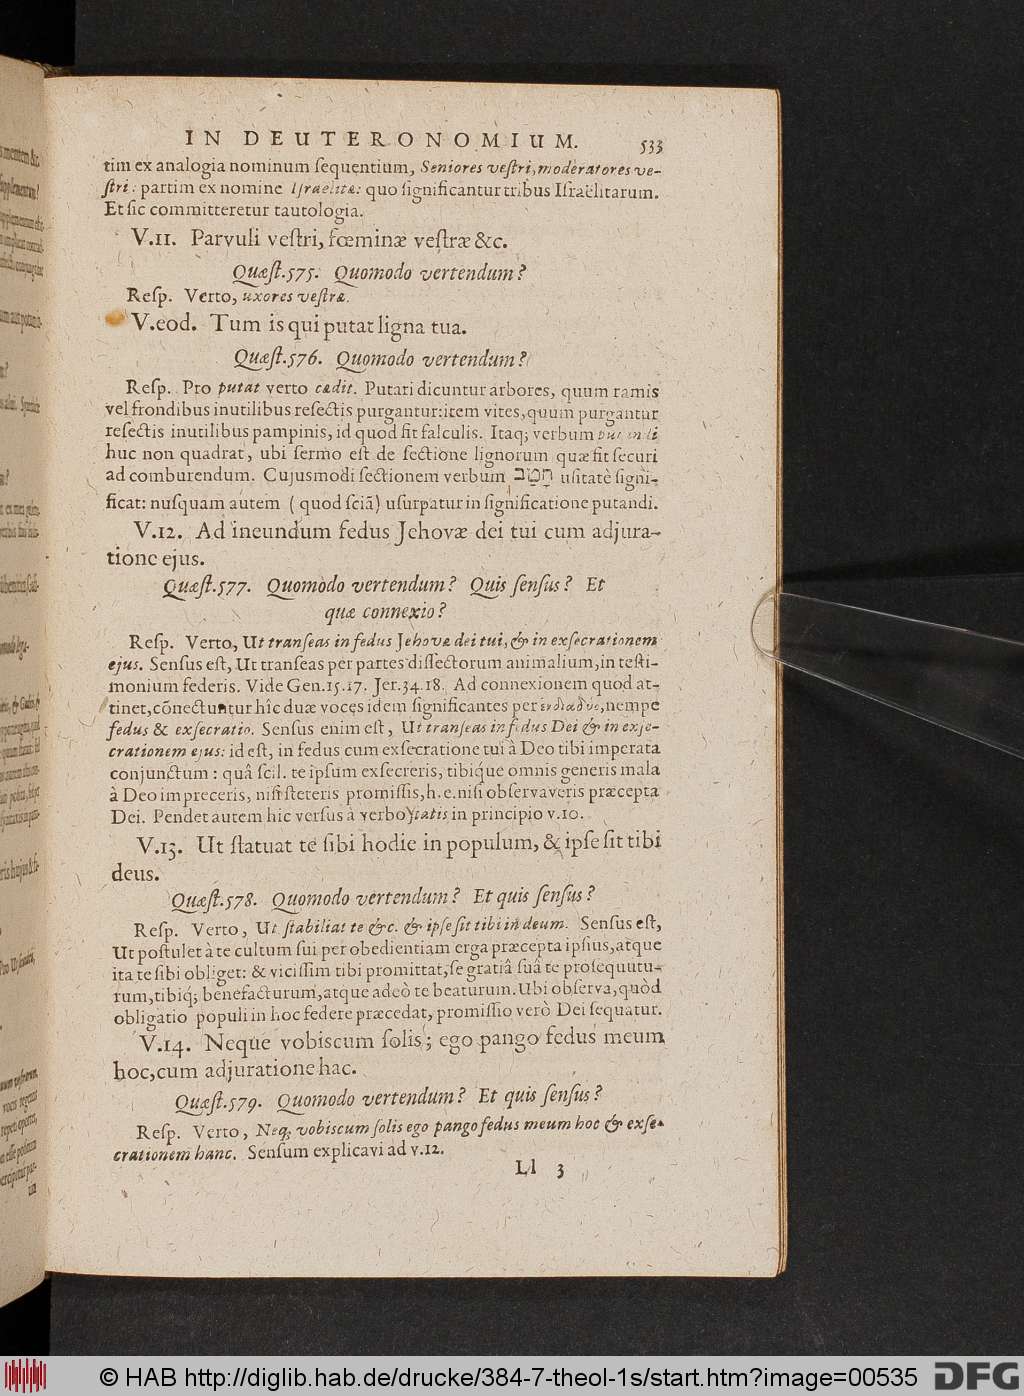 IN DEUTERONOMIUM. 533
tim ex analogia nominum ſequentium, Seniores veſtri, moderatores ve-
ſtri: partim ex nomine Iſraëlitæ: quo ſignificantur tribus Iſraëlitarum.
Et ſic committeretur tautologia.
V.11. Parvuli veſtri, fœminæ veſtræ &c.
Quæſt.575. Quomodo vertendum?
Reſp. Verto, uxores veſtræ.
V.eod. Tum is qui putat ligna tua.
Quæſt.576. Quomodo vertendum?
Reſp. Pro putat verto cædit. Putari dicuntur arbores, quum ramis
vel frondibus inutilibus reſectis purgantur: item vites, quum purgantur
reſectis inutilibus pampinis, id quod fit falculis. Itaq; verbum putandi
huc non quadrat, ubi ſermo eſt de ſectione lignorum quæ fit ſecuri
ad comburendum. Cujusmodi ſectionem verbum חטב uſitatè ſigni-
ficat: nuſquam autem (quod ſciā) uſurpatur in ſignificatione putandi.
V.12. Ad ineundum fedus Jehovæ dei tui cum adjura-
tione ejus.
Quæſt.577. Quomodo vertendum? Quis ſenſus? Et
quæ connexio?
Reſp. Verto, Ut tranſeas in fedus Jehovæ dei tui, & in exſecrationem
ejus. Senſus eſt, Ut tranſeas per partes diſſectorum animalium, in teſti-
monium federis. Vide Gen.15.17. Jer.34.18. Ad connexionem quod at-
tinet, cōnectuntur hîc duæ voces idem ſignificantes per ἑνδιαδύο, nempe
fedus & exſecratio. Senſus enim eſt, Ut tranſeas in fedus Dei & in exſe-
crationem ejus: id eſt, in fedus cum exſecratione tui à Deo tibi imperata
conjunctum: quâ ſcil. te ipſum exſecreris, tibiq́ue omnis generis mala
à Deo impreceris, niſi ſteteris promiſſis, h.e. niſi obſervaveris præcepta
Dei. Pendet autem hic verſus à verbo ſtatis in principio v.10.
V.13. Ut ſtatuat te ſibi hodie in populum, & ipſe ſit tibi
deus.
Quæſt.578. Quomodo vertendum? Et quis ſenſus?
Reſp. Verto, Ut ſtabiliat te &c. & ipſe ſit tibi in deum. Senſus eſt,
Ut poſtulet à te cultum ſui per obedientiam erga præcepta ipſius, atque
ita te ſibi obliget: & viciſſim tibi promittat, ſe gratiâ ſuâ te proſequutu-
rum, tibiq́; benefacturum, atque adeò te beaturum. Ubi obſerva, quòd
obligatio populi in hoc federe præcedat, promiſſio verò Dei ſequatur.
V.14. Neque vobiscum ſolis; ego pango fedus meum
hoc, cum adjuratione hac.
Quæſt.579. Quomodo vertendum? Et quis ſenſus?
Reſp. Verto, Neq; vobiscum ſolis ego pango fedus meum hoc & exſe-
crationem hanc. Senſum explicavi ad v.12.
Ll 3
© HAB http://diglib.hab.de/drucke/384-7-theol-1s/start.htm?image=00535
DFG